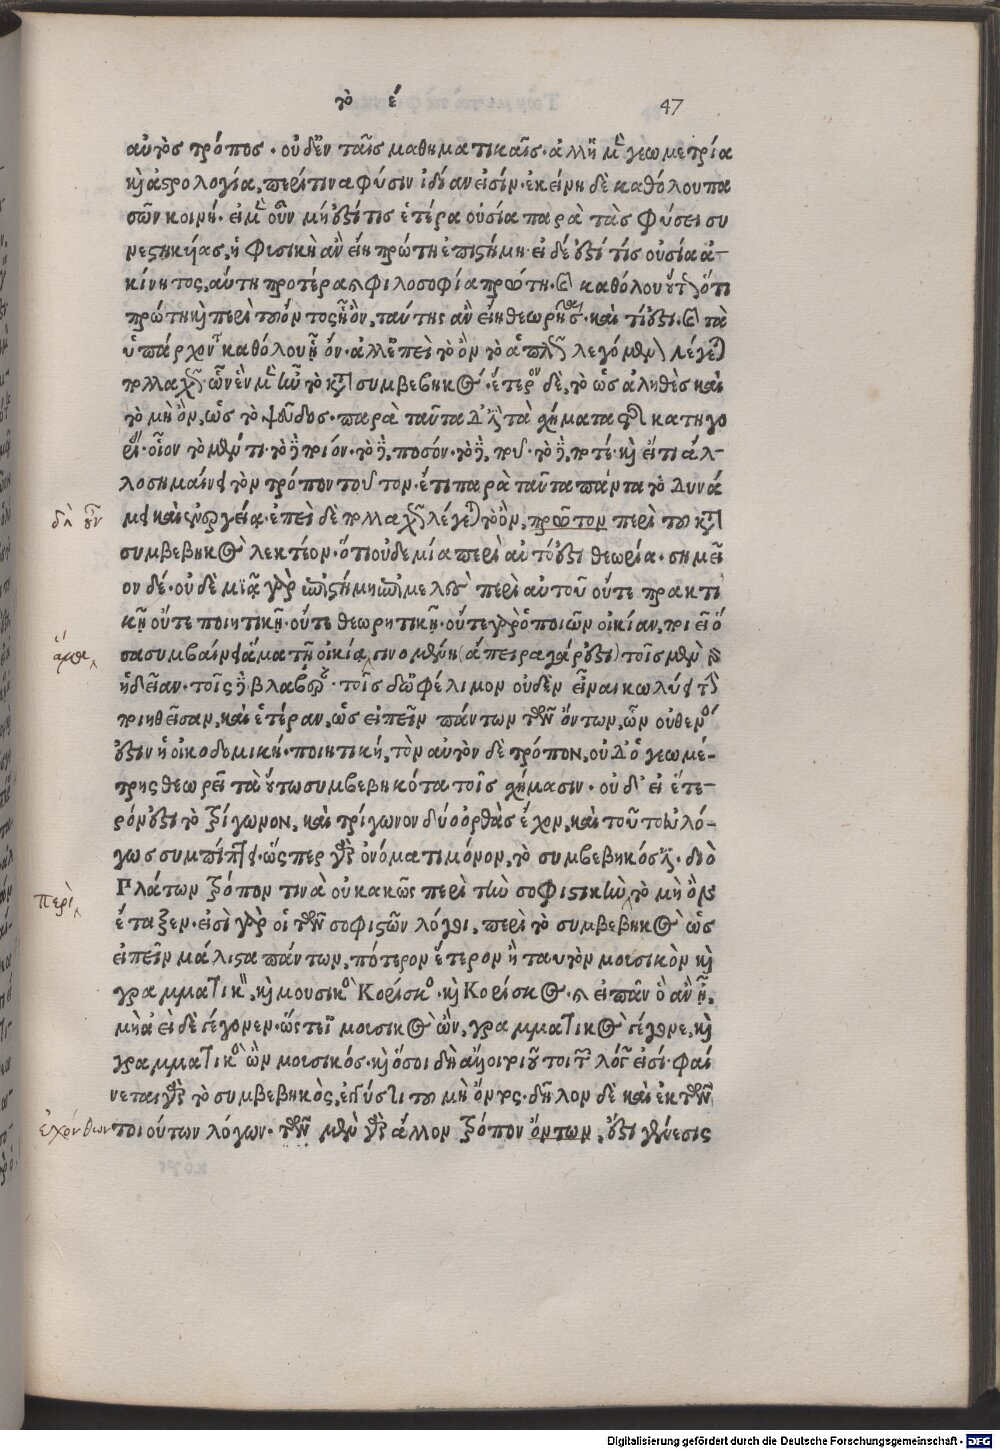 τὸ έ 47
αὐτὸς τρόπος· οὐδὲν ταῖς μαθηματικαῖς· ἀλλ' ἡ μὲν γεωμετρία
καὶ ἀστρολογία, περί τινα φύσιν ἰδίαν εἰσίν· ἐκείνη δὲ καθόλου πα
σῶν κοινή· εἰ μὲν οὖν μή ἐστί τις ἑτέρα οὐσία παρὰ τὰς φύσει συ
νεστηκυίας, ἡ φυσικὴ ἂν εἴη πρώτη ἐπιστήμη· εἰ δέ ἐστί τίς οὐσία ἀ-
κίνητος, αὕτη προτέρα καὶ φιλοσοφία πρώτη· καὶ καθόλου οὕτως ὅτι
πρώτη καὶ περὶ τοῦ ὄντος ᾗ ὂν, ταύτης ἂν εἴη θεωρῆσαι· καὶ τί ἐστι· καὶ τὰ
ὑπάρχοντα καθόλου ᾗ ὄν· ἀλλ' ἐπεὶ τὸ ὂν τὸ ἁπλῶς λεγόμενον λέγεται
πολλαχῶς ὧν ἓν μὲν ἦν τὸ κατὰ συμβεβηκός· ἕτερον δὲ, τὸ ὡς ἀληθὲς καὶ
τὸ μὴ ὂν, ὡς τὸ ψεῦδος· παρὰ ταῦτα δ' ἐστὶ τὰ σχήματα τῆς κατηγο
ρίας· οἷον τὸ μέν τι· τὸ δὲ ποιόν· τὸ δὲ, ποσόν· τὸ δὲ, ποῦ· τὸ δὲ, ποτέ· καὶ εἴ τι ἄλ-
λο σημαίνει τὸν τρόπον τοῦτον· ἔτι παρὰ ταῦτα πάντα τὸ δυνά
δὴ οὖν μει καὶ ἐνεργείᾳ· ἐπεὶ δὲ πολλαχῶς λέγεται τὸ ὂν, πρῶτον περὶ τοῦ κατὰ
συμβεβηκὸς λεκτέον· ὅτι οὐδεμία περὶ αὐτό ἐστι θεωρία· σημεῖ
ον δέ· οὐδὲ μιᾷ γὰρ ἐπιστήμῃ ἐπιμελὲς περὶ αὐτοῦ οὔτε πρακτι
κῇ οὔτε ποιητικῇ· οὔτε θεωρητικῇ· οὔτε γὰρ ὁ ποιῶν οἰκίαν, ποιεῖ ὅ
ἅμα σα συμβαίνει ἅμα τῇ οἰκίᾳ γινομένῃ (ἄπειρα γάρ ἐστι) τοῖς μὲν γὰρ
ἡδεῖαν· τοῖς δὲ βλαβερὰν· τοῖς δ' ὠφέλιμον οὐδὲν εἶναι κωλύει τὴν
ποιηθεῖσαν, καὶ ἑτέραν, ὡς εἰπεῖν πάντων τῶν ὄντων, ὧν οὐθενός
ἐστιν ἡ οἰκοδομική· ποιητική, τὸν αὐτὸν δὲ τρόπον, οὐδ' ὁ γεωμέ-
τρης θεωρεῖ τὰ οὕτω συμβεβηκότα τοῖς σχήμασιν· οὐδ' εἰ ἕτε-
ρόν ἐστι τὸ τρίγωνον, καὶ τρίγωνον δύο ὀρθὰς ἔχον, καὶ τοῦτο εὐλό-
γως συμπίπτει· ὥσπερ γὰρ ὀνόματι μόνον, τὸ συμβεβηκός ἐστι· διὸ
περὶ Πλάτων τρόπον τινὰ οὐ κακῶς περὶ τὴν σοφιστικὴν τὸ μὴ ὂν
ἔταξεν· εἰσὶ γὰρ οἱ τῶν σοφιστῶν λόγοι, περὶ τὸ συμβεβηκὸς ὡς
εἰπεῖν μάλιστα πάντων, πότερον ἕτερον ἢ ταυτὸν μουσικὸν καὶ
γραμματικὸν, καὶ μουσικὸς Κορίσκος· καὶ Κορίσκος· καὶ εἰ πᾶν ὃ ἂν ᾖ,
μὴ ἀεὶ δὲ γέγονεν· ὥστε εἰ μουσικὸς ὢν, γραμματικὸς γέγονε, καὶ
γραμματικὸς ὢν μουσικός· καὶ ὅσοι δὴ ἄλλοι τοιοῦτοι τῶν λόγων εἰσί· φαί
νεται γὰρ τὸ συμβεβηκὸς, ἐγγύς τι τοῦ μὴ ὄντος· δῆλον δὲ καὶ ἐκ τῶν
τοιούτων λόγων· τῶν μὲν γὰρ ἄλλον τρόπον ὄντων, ἔστι γένεσις